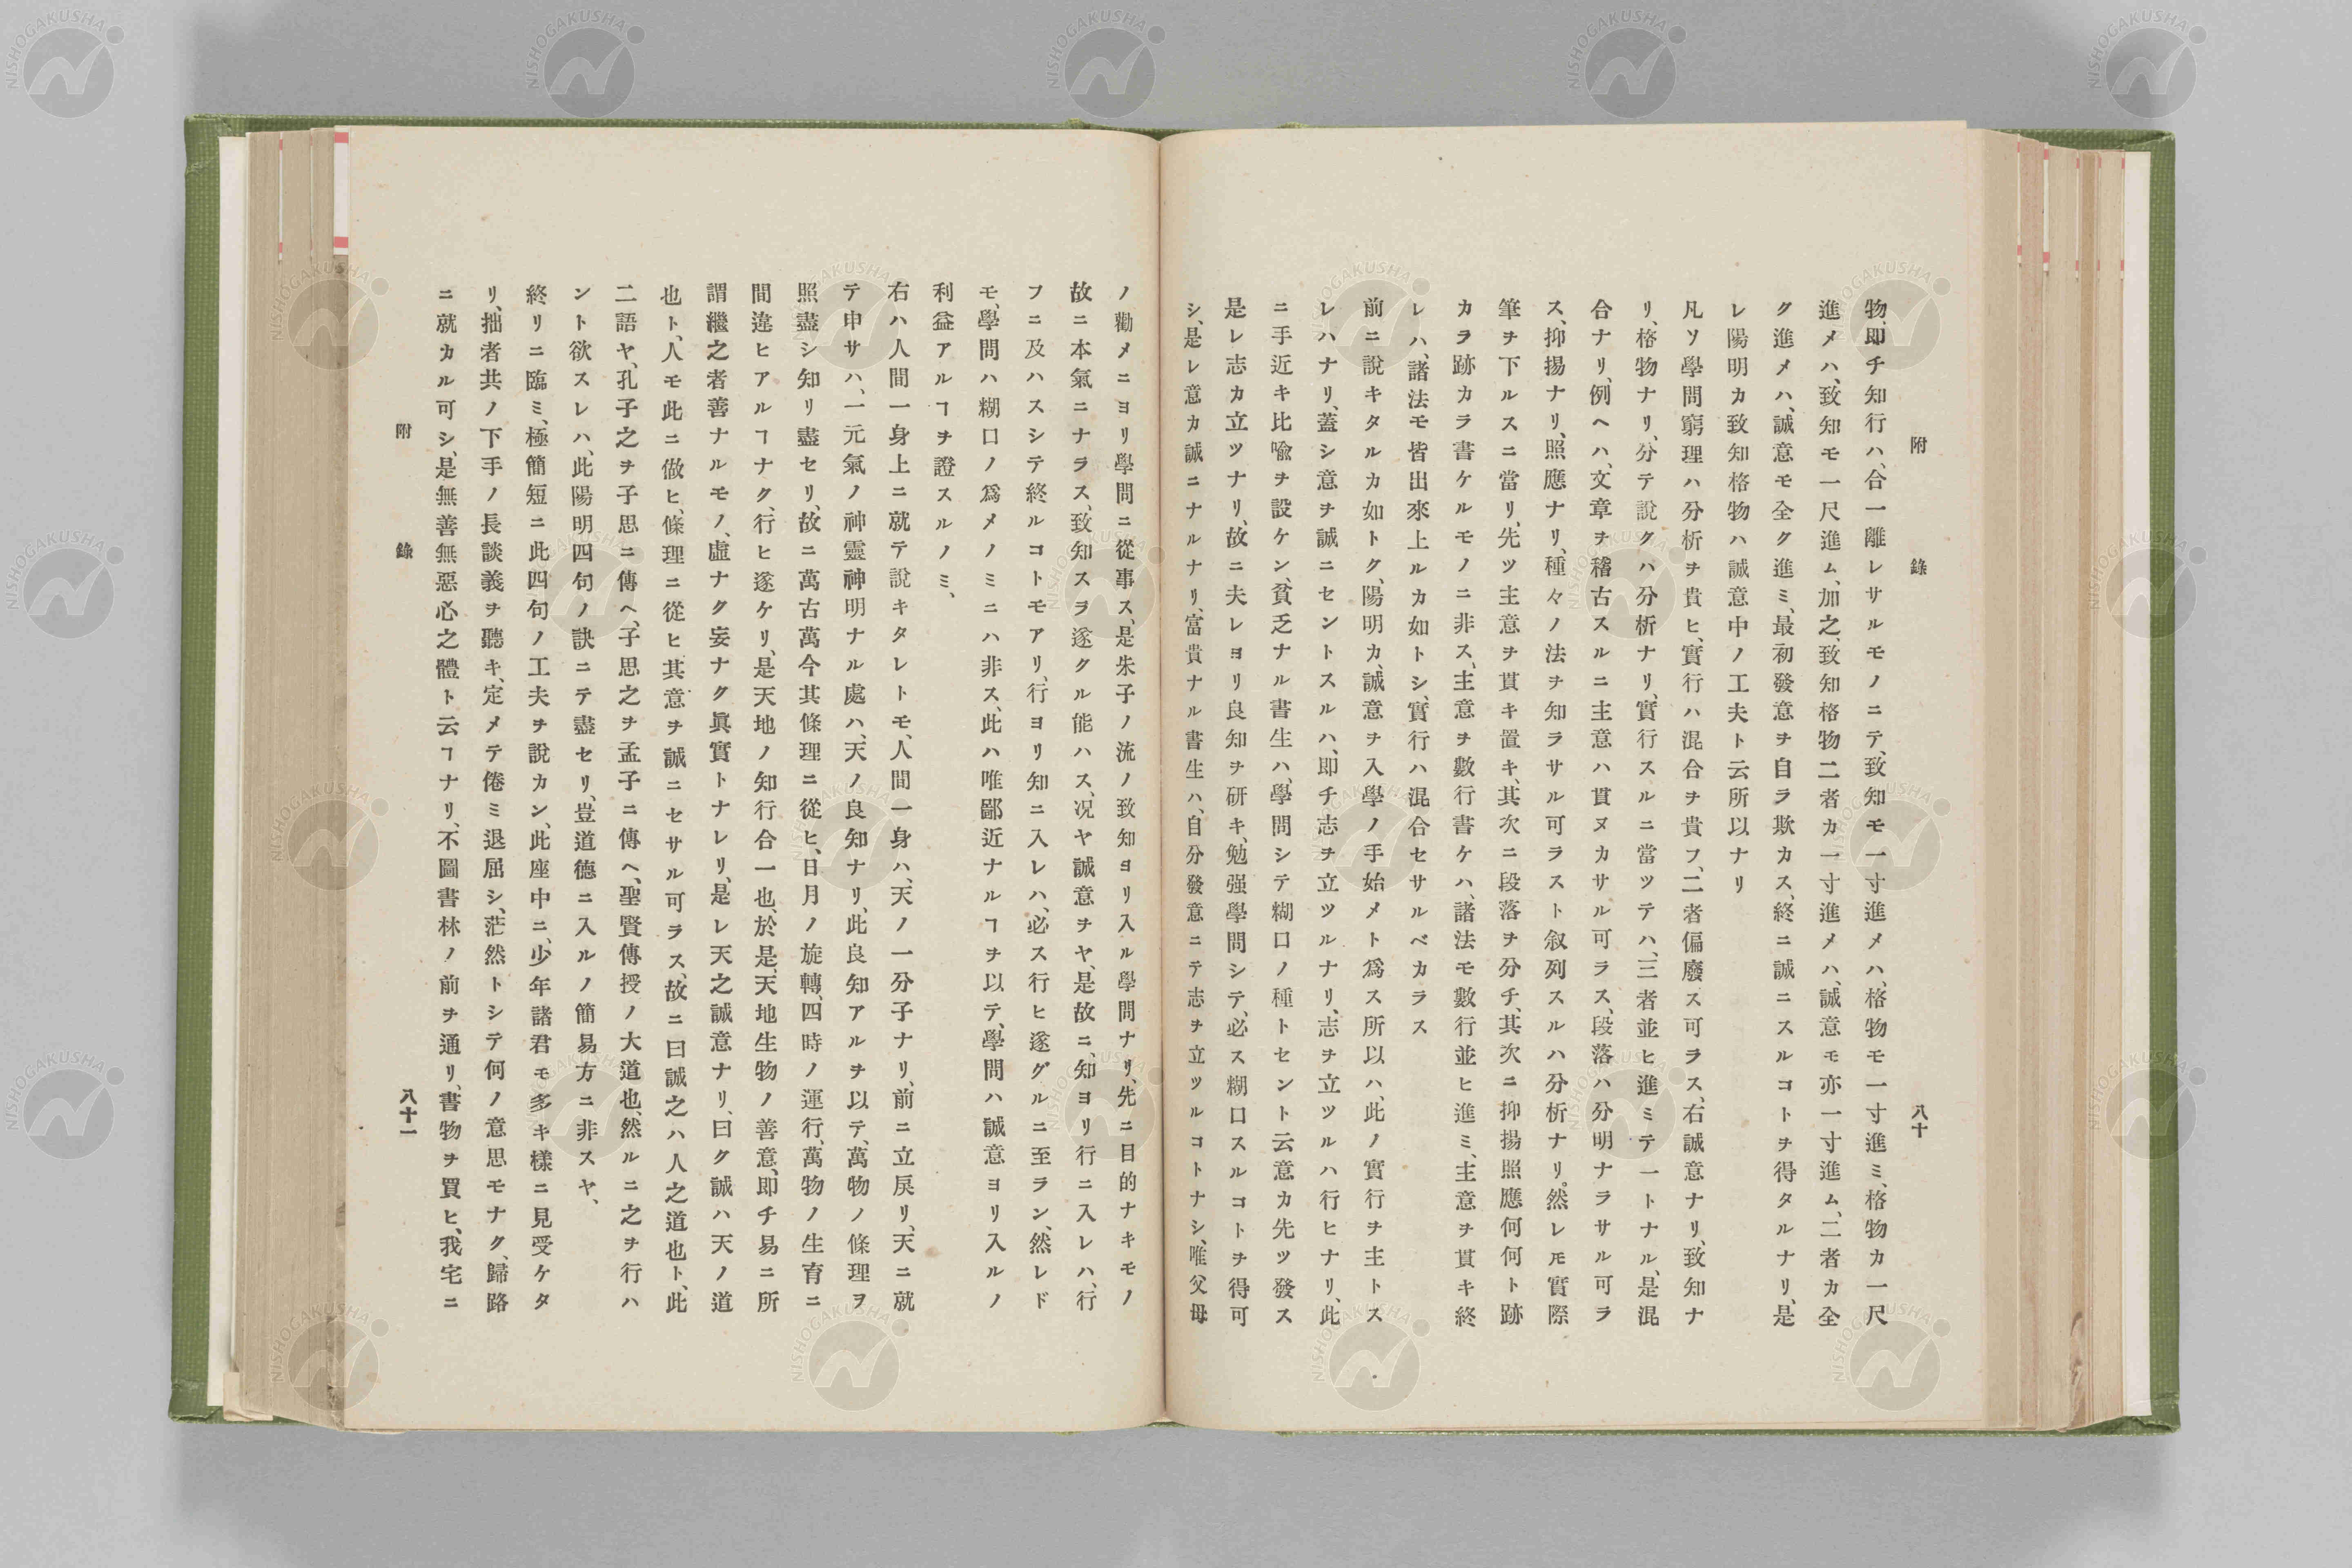 附錄
八十
物、即チ知行ハ、合一離レサルモノニテ、致知モ一寸進メハ、格物モ一寸進ミ、格物カ一尺
進メハ、致知モ一尺進ム、加之、致知格物二者カ一寸進メハ、誠意モ亦一寸進ム、二者カ全
ク進メハ、誠意モ全ク進ミ、最初發意ヲ自ラ欺カス、終ニ誠ニスルコトヲ得タルナリ、是
レ陽明カ致知格物ハ誠意中ノ工夫ト云所以ナリ
凡ソ學問窮理ハ分析ヲ貴ヒ、實行ハ混合ヲ貴フ、二者偏廢ス可ラス、右誠意ナリ、致知ナ
リ、格物ナリ、分テ說クハ分析ナリ、實行スルニ當ツテハ、三者並ヒ進ミテ一トナル、是混
合ナリ、例ヘハ、文章ヲ稽古スルニ主意ハ貫ヌカサル可ラス、段落ハ分明ナラサル可ラ
ス、抑揚ナリ、照應ナリ、種々ノ法ヲ知ラサル可ラスト叙列スルハ分析ナリ。然レ𪜈實際
筆ヲ下ルスニ當リ、先ツ主意ヲ貫キ置キ、其次ニ段落ヲ分チ、其次ニ抑揚照應何何ト跡
カラ跡カラ書ケルモノニ非ス、主意ヲ數行書ケハ、諸法モ數行並ヒ進ミ、主意ヲ貫キ終
レハ、諸法モ皆出來上ルカ如トシ、實行ハ混合セサルベカラス
前ニ說キタルカ如トク、陽明カ、誠意ヲ入學ノ手始メト爲ス所以ハ、此ノ實行ヲ主トス
レハナリ、蓋シ意ヲ誠ニセントスルハ、即チ志ヲ立ツルナリ、志ヲ立ツルハ行ヒナリ、此
ニ手近キ比喩ヲ設ケン、貧乏ナル書生ハ、學問シテ糊口ノ種トセント云意カ先ツ發ス
是レ志カ立ツナリ、故ニ夫レヨリ良知ヲ研キ、勉强學問シテ、必ス糊口スルコトヲ得可
シ、是レ意カ誠ニナルナリ、富貴ナル書生ハ、自分發意ニテ志ヲ立ツルコトナシ、唯父母
ノ勸メニヨリ學問ニ從事ス、是朱子ノ流ノ致知ヨリ入ル學問ナリ、先ニ目的ナキモノ
故ニ本氣ニナラス、致知スラ遂クル能ハス、况ヤ誠意ヲヤ、是故ニ、知ヨリ行ニ入レハ、行
フニ及ハスシテ終ルコトモアリ、行ヨリ知ニ入レハ、必ス行ヒ遂グルニ至ラン、然レド
モ、學問ハ糊口ノ爲メノミニハ非ス、此ハ唯鄙近ナルヿヲ以テ、學問ハ誠意ヨリ入ルノ
利益アルヿヲ證スルノミ、
右ハ人間一身上ニ就テ說キタレトモ、人間一身ハ、天ノ一分子ナリ、前ニ立戾リ、天ニ就
テ申サハ、一元氣ノ神靈神明ナル處ハ、天ノ良知ナリ、此良知アルヲ以テ、萬物ノ條理ヲ
照盡シ知リ盡セリ、故ニ萬古萬今其條理ニ從ヒ、日月ノ旋轉、四時ノ運行、萬物ノ生育ニ
間違ヒアルヿナク、行ヒ遂ケリ、是天地ノ知行合一也、於是、天地生物ノ善意、即チ易ニ所
謂繼之者善ナルモノ、虛ナク妄ナク眞實トナレリ、是レ天之誠意ナリ、曰ク誠ハ天ノ道
也ト、人モ此ニ倣ヒ、條理ニ從ヒ、其意ヲ誠ニセサル可ラス、故ニ曰誠之ハ人之道也ト、此
二語ヤ、孔子之ヲ子思ニ傳ヘ、子思之ヲ孟子ニ傳ヘ、聖賢傳授ノ大道也、然ルニ之ヲ行ハ
ント欲スレハ、此陽明四句ノ訣ニテ盡セリ、豈道德ニ入ルノ簡易方ニ非スヤ、
終リニ臨ミ、極簡短ニ此四句ノ工夫ヲ說カン、此座中ニ、少年諸君モ多キ樣ニ見受ケタ
リ、拙者共ノ下手ノ長談義ヲ聽キ、定メテ倦ミ退屈シ、茫然トシテ何ノ意思モナク、歸路
ニ就カル可シ、是無善無惡必之體ト云ヿナリ、不圖書林ノ前ヲ通リ、書物ヲ買ヒ、我宅ニ
附錄
八十一